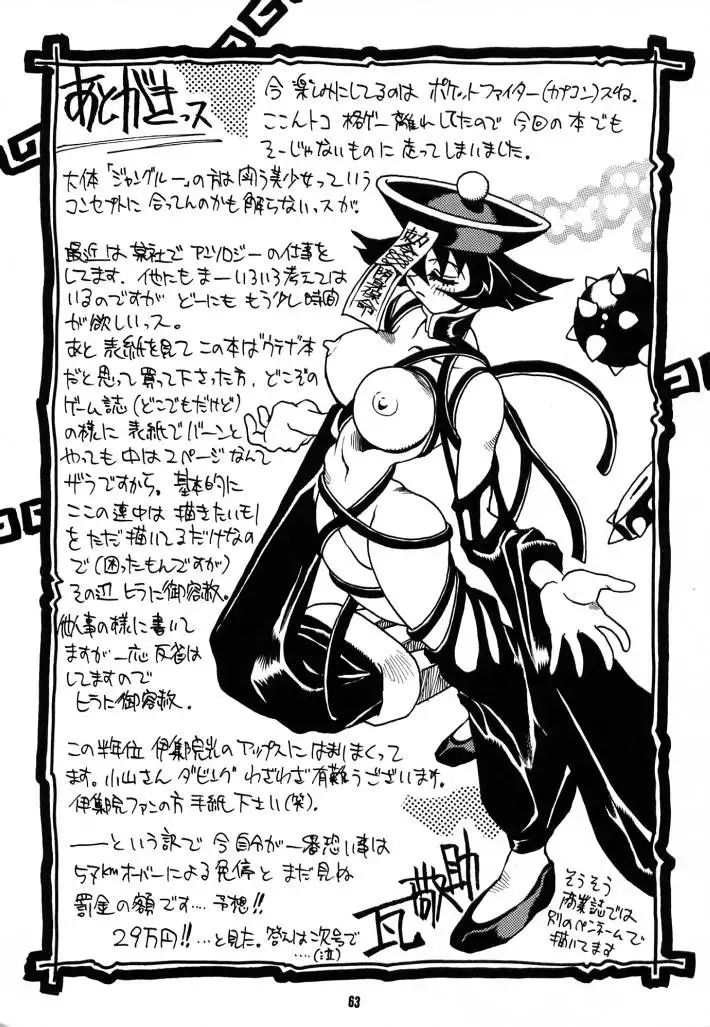 あとがきっス
今 楽しみにしてるのは ポケットファイター(カプコン)スね。
ここんトコ 格ゲー離れしてたので 今回の本でも
そーじゃないものに 走ってしまいました。
大体「ジャングルー」の方は 闘う美少女っていう
コンセプトに 合ってんのかも解らないっスが。
最近は某社でアンソロジーの仕事を
してます。他にもまーいろいろ考えては
いるのですが どーにも もう少し時間
が欲しいっス。
あと 表紙を見て この本はウテナ本
だと思って買って下さった方、どこぞの
ゲーム誌(どこでもだけど)
の様に 表紙でバーンと
やっても 中は2ページなんて
ザラですから。基本的に
ここの連中は 描きたいモノ
をただ描いてるだけなの
で(困ったもんですが)
その辺 ヒラに御容赦。
他人事の様に書いて
ますが 一応 反省は
してますので
ヒラに御容赦.
この半年位 伊集院光のアップスにはまりまくって
ます。小山さん ダビング わざわざ有難うございます。
伊集院ファンの方 手紙下さい(笑).
――という訳で 今自分が一番恐い事は
57kmオーバーによる免停と まだ見ぬ
罰金の額です‥‥予想!!
29万円!!…と見た。答えは次号で
‥‥(泣)
瓦敬助
そうそう
商業誌では
別のペンネームで
描いてます
63